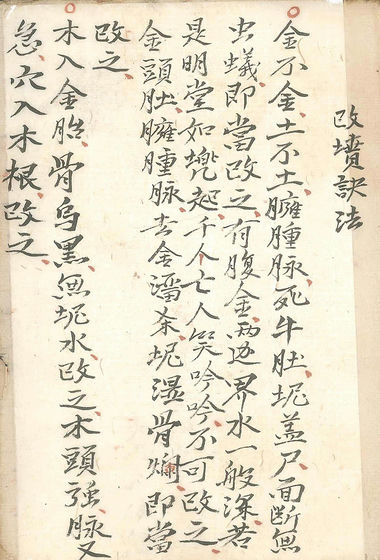 改墳訣法
金不金土不土臃腫脉死牛肚坭蓋尸面斷無
虫蟻即當改之有腹金両边界水一般深若
是明堂如堯起千个亡人笑吟吟不可改之
金頭肚臃腫脉去金濇杀坭濕骨爛即當
改之
木入金胎骨烏黑無坭水改之木頭强脉又
急穴入木根改之